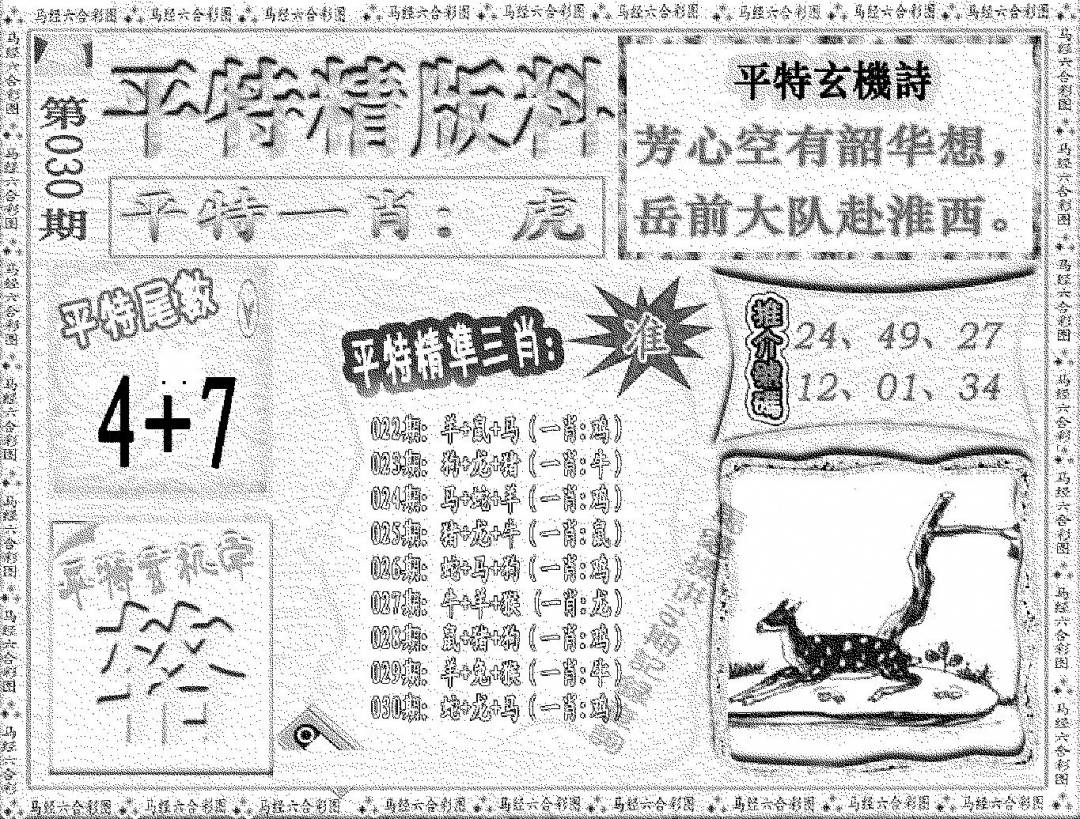 马经六合彩图 马经六合彩图 马经六合彩图 马经六合彩图 马经六合彩图 马经六合彩图 马经六合彩图 马经六合彩图 马经六合彩图
第030期
平特精版料
平特一肖：虎
平特玄機詩
芳心空有韶华想，
岳前大队赴淮西。
平特尾数
4+7
平特精準三肖:
准
022期: 羊+鼠+马 (一肖:鸡)
023期: 狗+龙+猪 (一肖:牛)
024期: 马+蛇+羊 (一肖:鸡)
025期: 猪+龙+牛 (一肖:鼠)
026期: 蛇+马+狗 (一肖:鸡)
027期: 牛+羊+猴 (一肖:龙)
028期: 鼠+猪+狗 (一肖:鸡)
029期: 羊+兔+猴 (一肖:牛)
030期: 蛇+龙+马 (一肖:鸡)
推介號碼
24、49、27
12、01、34
平特玄机字
马经六合彩图 马经六合彩图 马经六合彩图 马经六合彩图 马经六合彩图 马经六合彩图 马经六合彩图 马经六合彩图 马经六合彩图